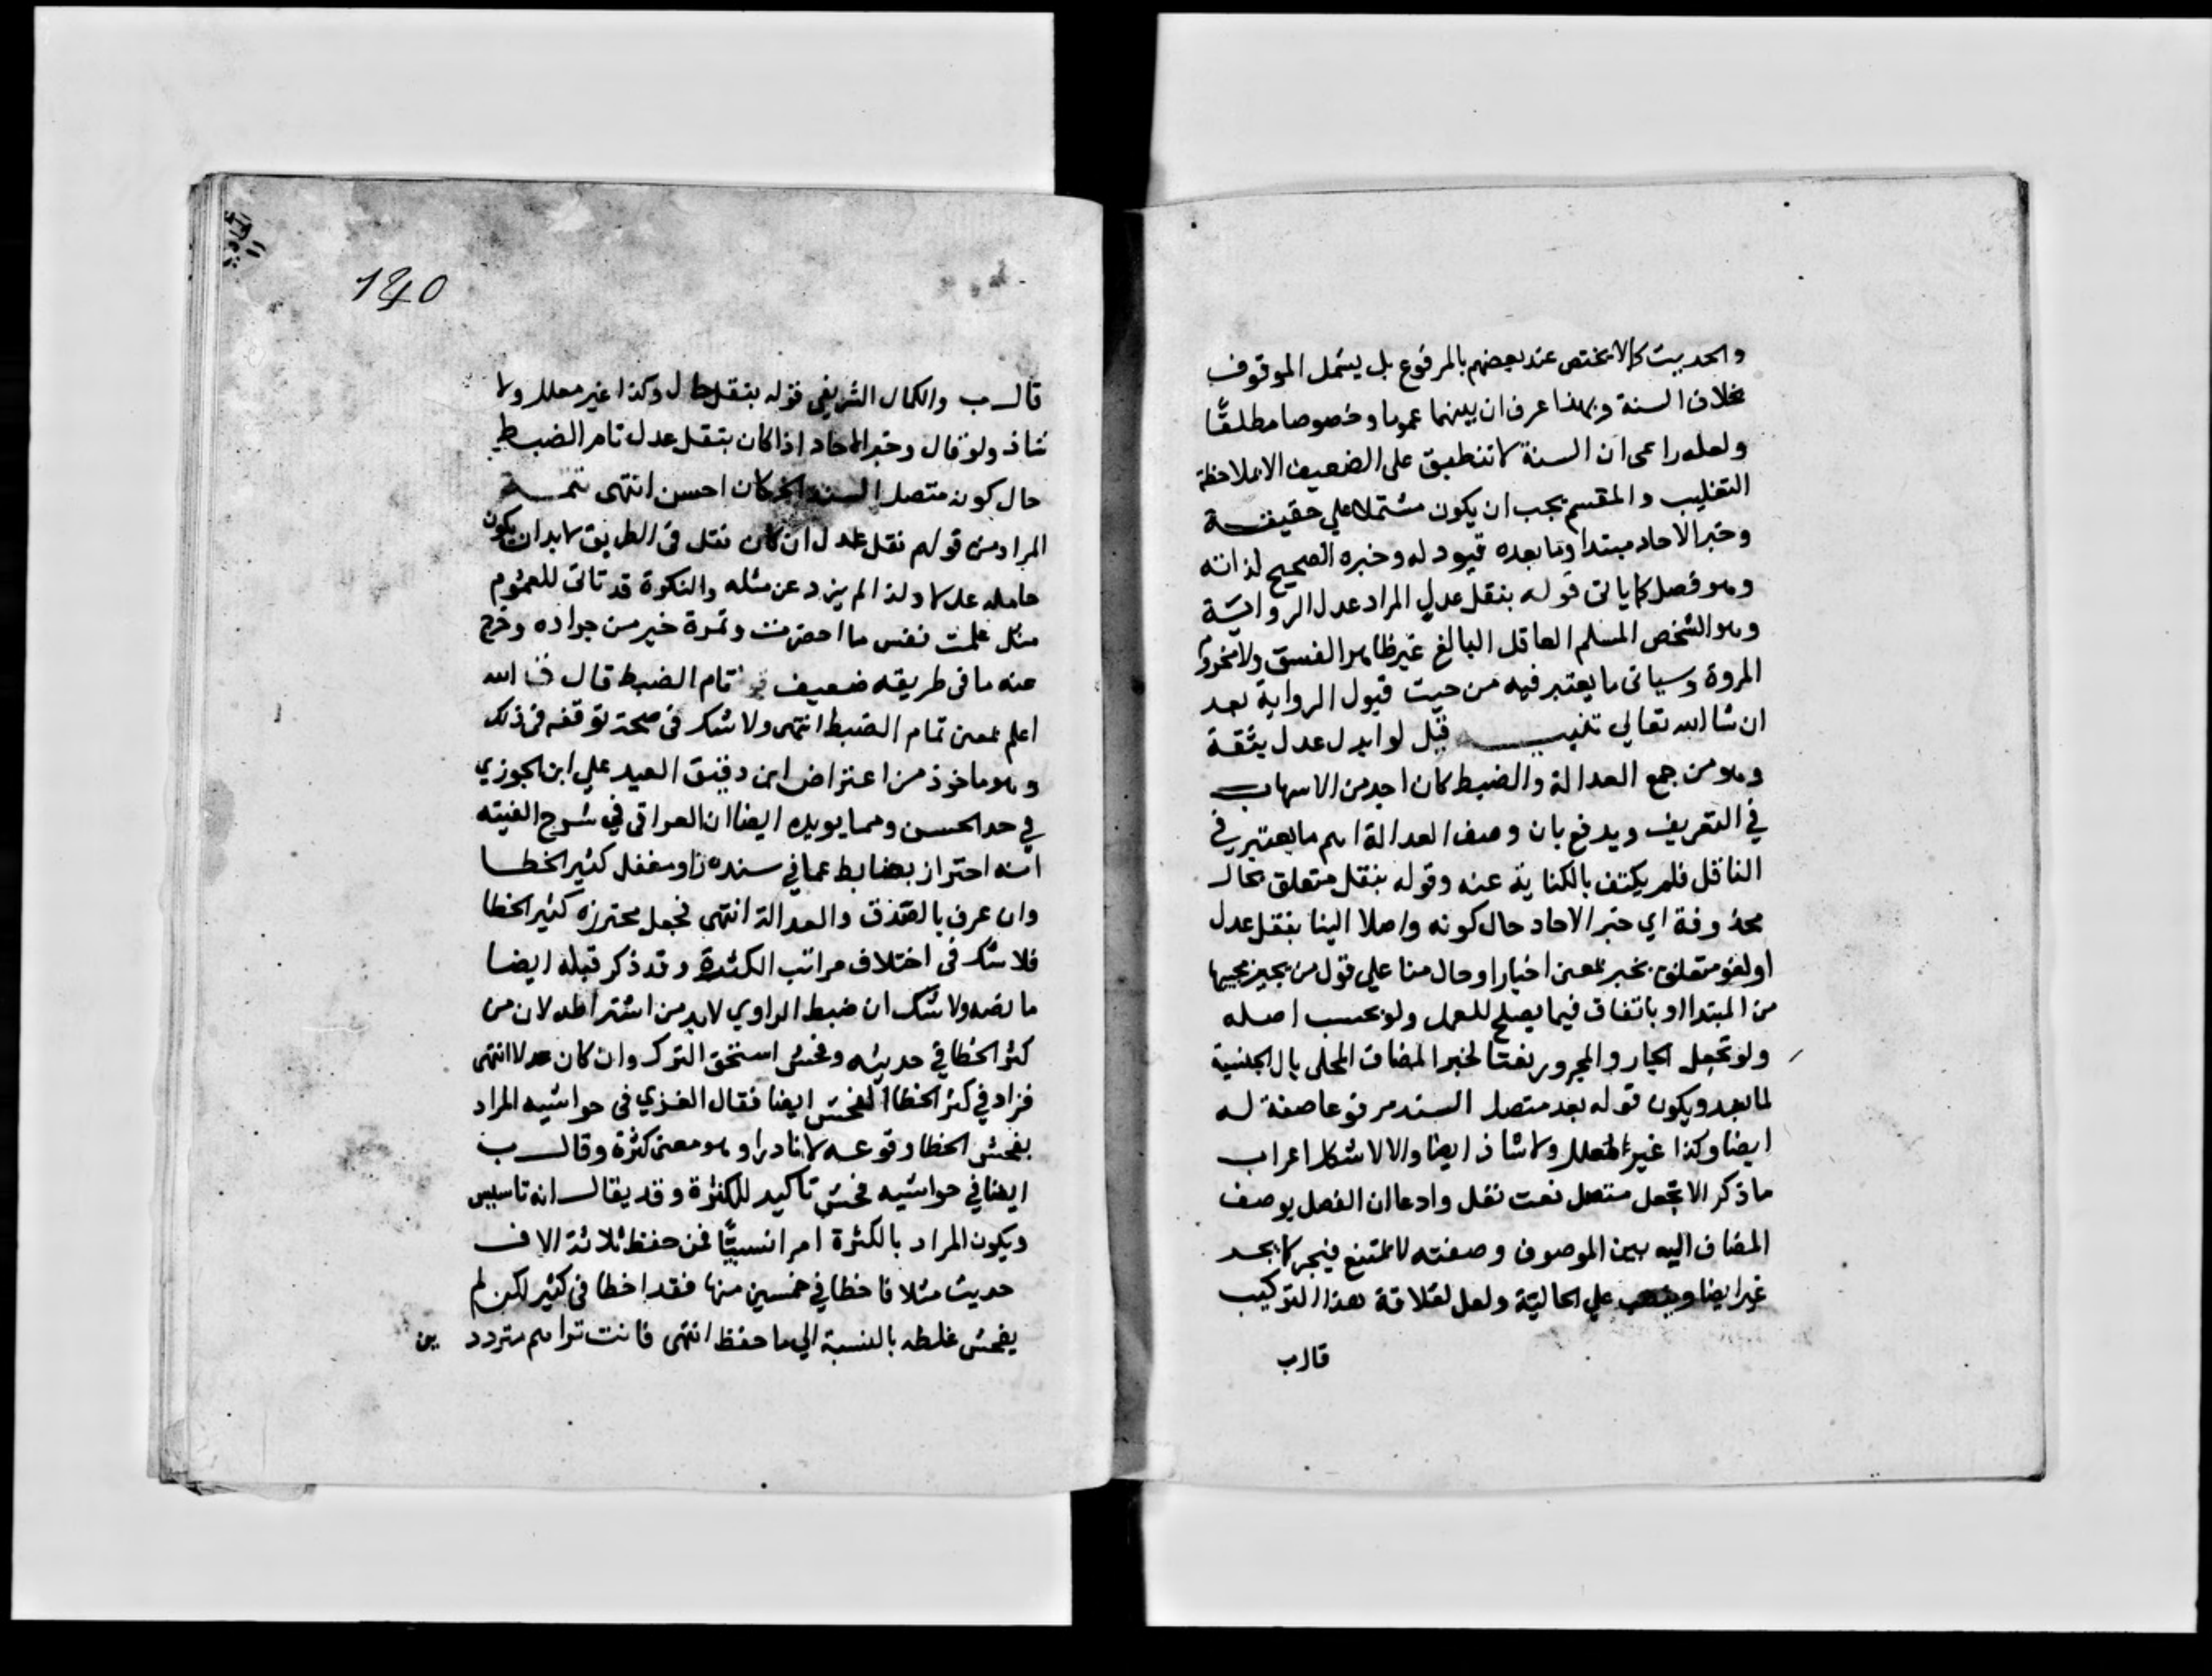 والحديث كالا يختص عند بعضهم بالمرفوع بل يشمل الموقوف
بخلاف السنة وبهذا عرف ان بينهما عموما وخصوصا مطلقًا
ولعله راعى ان السنة لا تنطبق على الضعيف الا بملاحظة
التغليب والمقسم يجب ان يكون مشتملا علي حقيقة
وخبر الاحاد مبتدا وما بعده قيود له وخبره الصحيح لذاته
وهو فصل كما ياتى قوله بنقل عدل المراد عدل الرواية
وهو الشخص المسلم العاقل البالغ غير ظاهر الفسق ولا مخروم
المروة وسياتى ما يعتبر فيه من حيث قبول الرواية بعد
ان شا الله تعالي تنبيه قيل لو ابدل عدل بثقة
وهو من جمع العدالة والضبط كان اجد من الاسهاب
في التعريف ويدفع بان وصف العدالة اهم ما يعتبر في
الناقل فلم يكتف بالكناية عنه وقوله بنقل متعلق بحال
محذوفة اي خبر الاحاد حال كونه واصلا الينا بنقل عدل
او لغو متعلق بخبر بمعنى اخبار او حال منا علي قول من يجيز مجيها
من المبتدا او باتفاق فيما يصلح للعمل ولو بحسب اصله
ولو تجعل الجار والمجرور نعتا لخبر المضاف المحلى بال الجنسية
لما بعد ويكون قوله بعد متصل السند مرفوعا صفة له
ايضا وكذا غير المعلل ولا شاذ ايضا والا لاشكل اعراب
ما ذكر الا تجعل متصل نعت نقل وادعا ان الفصل بوصف
المضاف اليه بين الموصوف وصفته لا ممتنع فيجر كما بحد
غير ايضا وينصب علي الحالية ولعل لقلاقة هذا التركيب
قال ب
140
قال ب والكمال الشريفى قوله بنقل حال وكذا غير معلل ولا
شاذ ولو قال وخبر الاحاد اذا كان بنقل عدل تام الضبط
حال كونه متصل السند الخ كان احسن انتهى تتمة
المراد من قولهم نقل عدل ان كان نقل فى الطريق لا بد ان يكون
حامله عدلا ولذا لم يزد عن مثله والنكرة قد تاتى للعموم
مثل علمت نفس ما احضرت وتمرة خير من جرادة وخرج
عنه ما فى طريقه ضعيف تام الضبط قال ق الله
اعلم بمعنى تمام الضبط انتهى ولا شك فى صحة توقفه فى ذلك
وهو ماخوذ من اعتراض ابن دقيق العيد علي ابن الجوزي
في حد الحسن ومما يويده ايضا ان العراقى في شرح الفيته
انه احتراز بضابط عما في سنده راو مغفل كثير الخطا
وان عرف بالصدق والعدالة انتهى فجعل محترزه كثير الخطا
فلا شك فى اختلاف مراتب الكثرة وقد ذكر قبله ايضا
ما نصه ولا شك ان ضبط الراوي لا بد من اشتراطه لان من
كثر الخطا في حديثه وفحش استحق الترك وان كان عدلا انتهى
فزاد في كثر الخطا الفحش ايضا فقال الغزي فى حواشيه المراد
بفحش الخطا وقوعه لا نادرا وهو معنى كثرة وقال ب
ايضا في حواشيه فحش تاكيد للكثرة وقد يقال انه تاسيس
ويكون المراد بالكثرة امرا نسبيًّا فمن حفظ ثلاثة الاف
حديث مثلا فاخطا في خمسين منها فقد اخطا فى كثير لكن لم
يفحش غلطه بالنسبة الي ما حفظ انتهى فانت تراهم متردد
بين